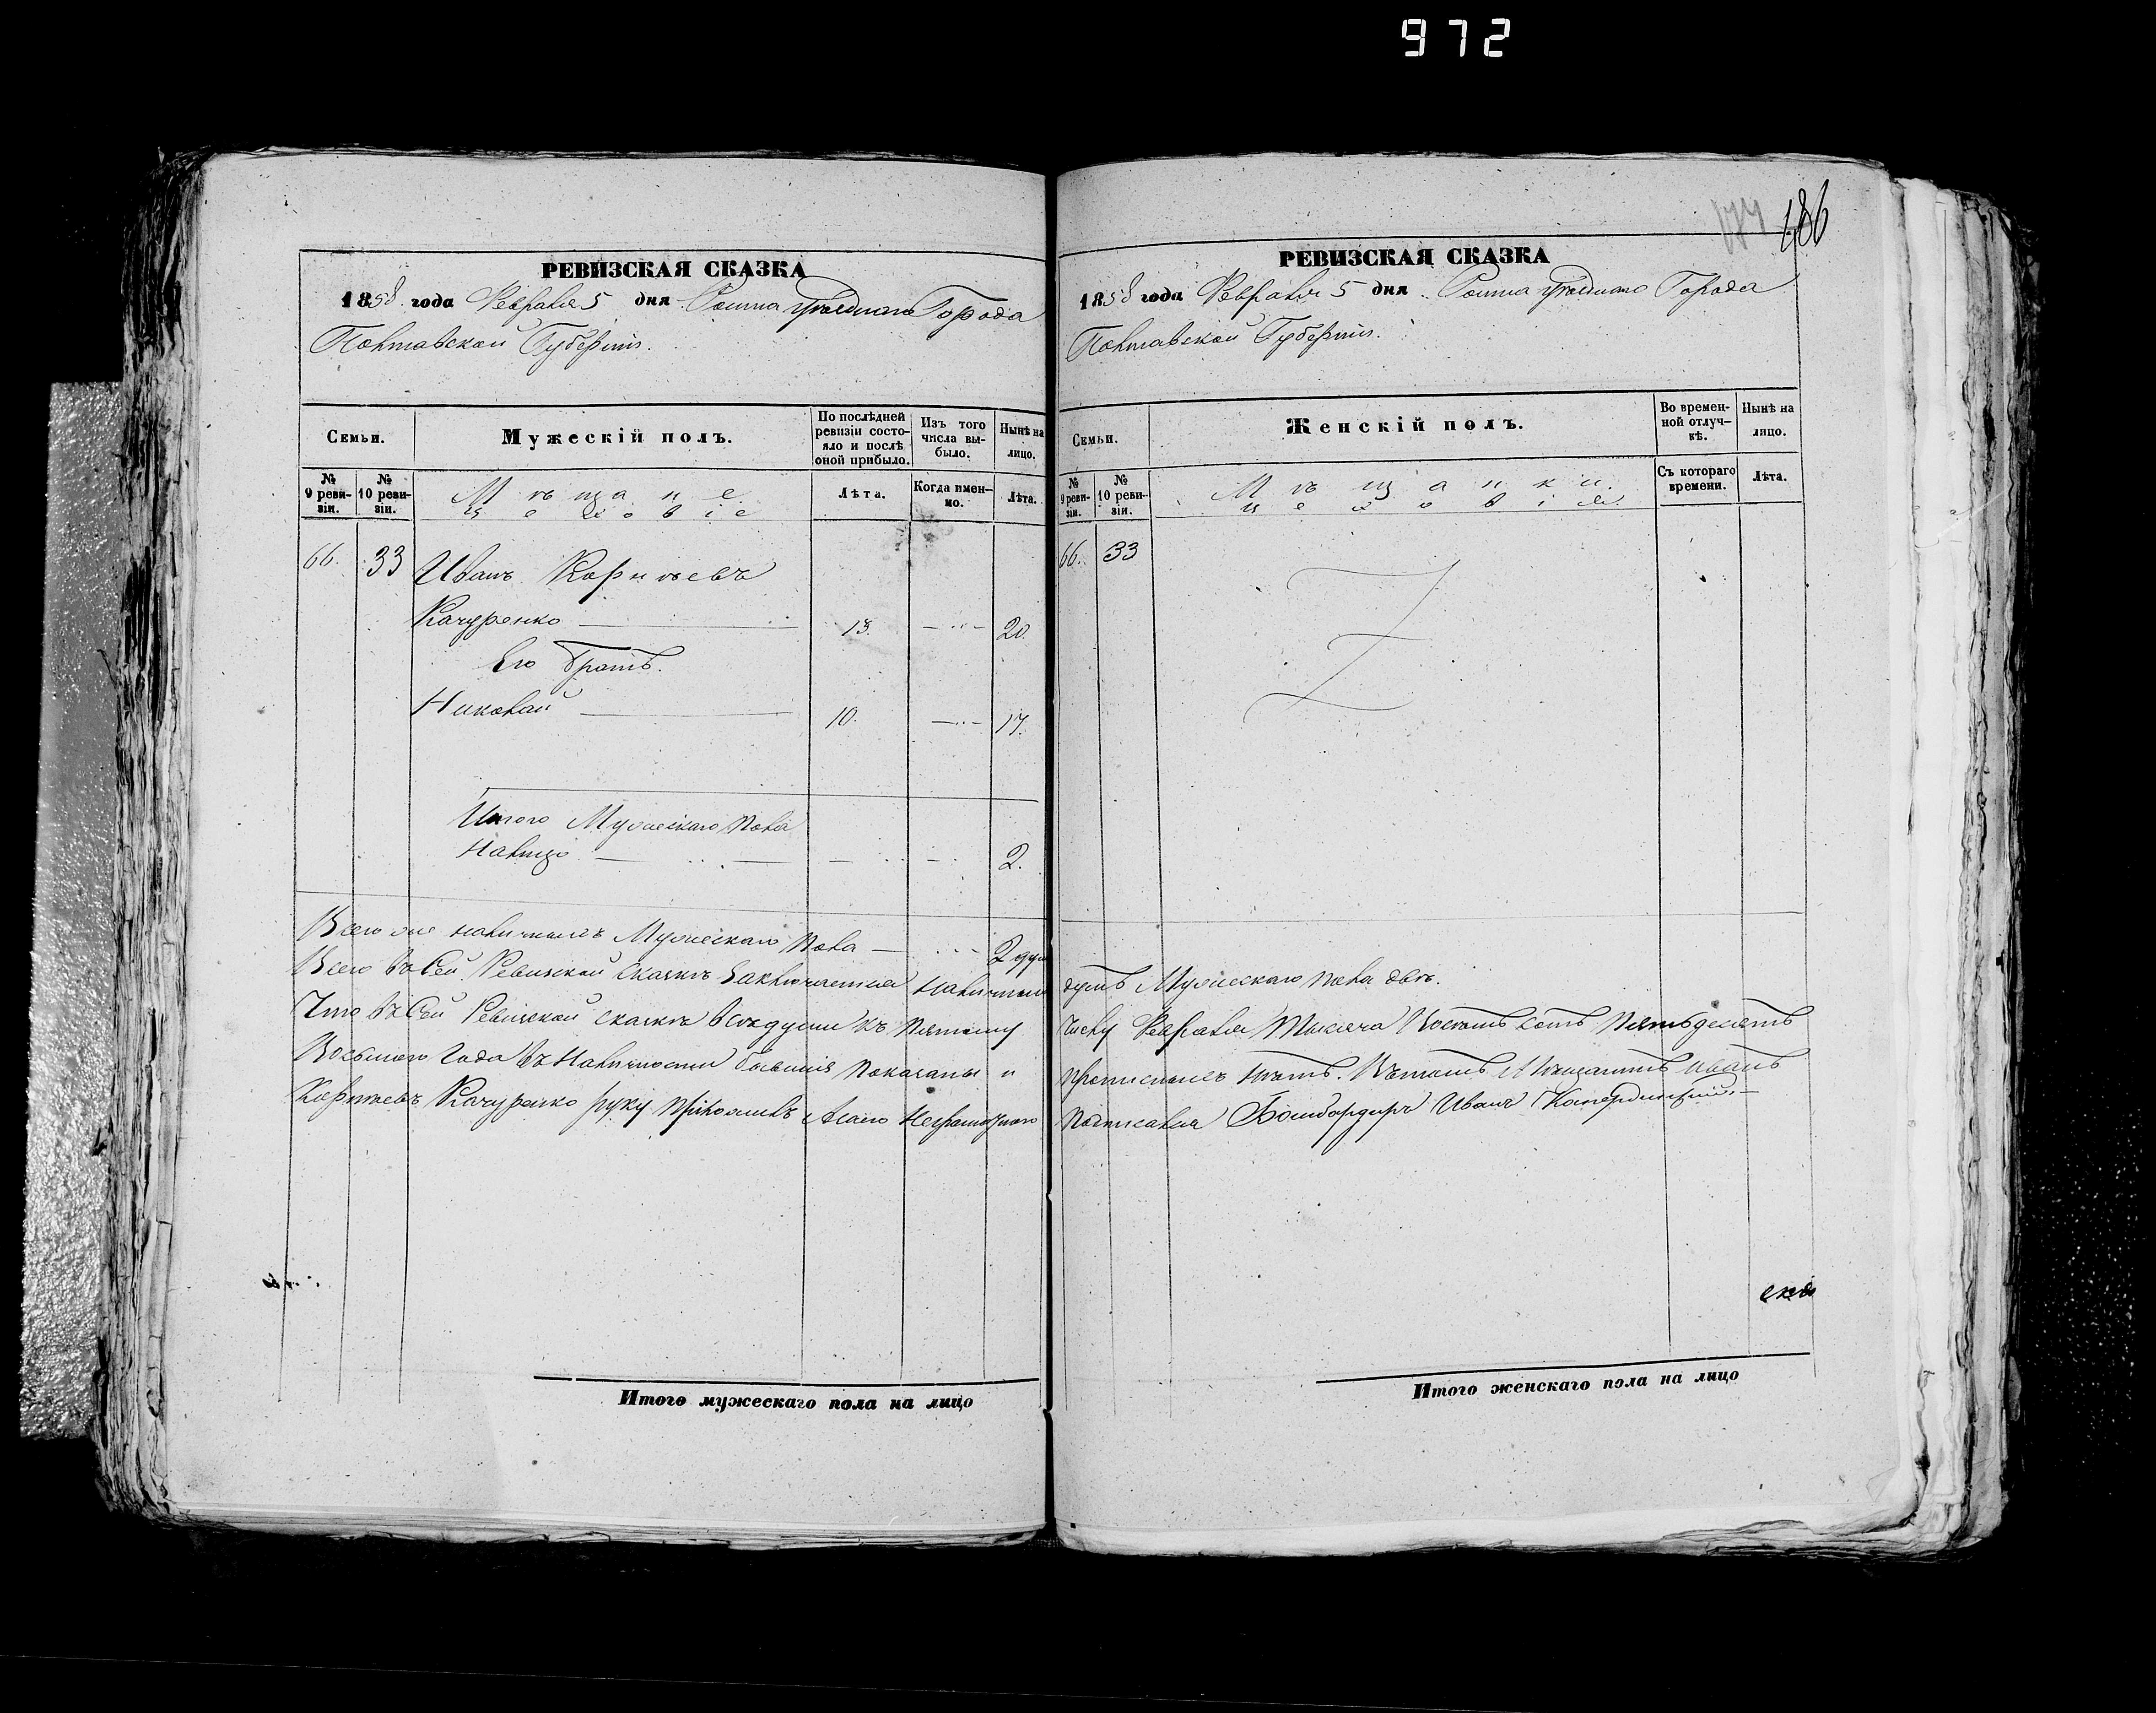 972
РЕВИЗСКАЯ СКАЗКА
1858 года Февраля 5 дня Ромна уѣзднаго Города
Полтавской Губерніи.
Семьи.
Мужескій полъ.
По послѣдней ревизіи состояло и послѣ оной прибыло.
Изъ того числа выбыло.
Нынѣ на лицо.
№ 9 ревизіи.
№ 10 ревизіи.
Мѣщане
цеховіе
Лѣта.
Когда именно.
Лѣта.
66. 33 Иванъ Корнѣевъ
Качуренко 13. 20.
Его Братъ.
Николай 10. 17.
Итого Мужескаго пола
налицо 2.
Всего же наличныхъ Мужескаго пола 2 душ
Всего въ Сей Ревизской сказкѣ заключается наличныхъ
Что въ Сей Ревизской сказкѣ всѣ души къ пятому
Восьмого Года въ Наличности бывшія показаны и
Корнѣевъ Качуренко руку приложилъ а вместо неграмотнаго
Итого мужескаго пола на лицо
174 186
РЕВИЗСКАЯ СКАЗКА
1858 года Февраля 5 дня Ромна уѣзднаго Города
Полтавской Губерніи.
Семьи.
Женскій полъ.
Во временной отлучкѣ.
Нынѣ на лицо.
№ 9 ревизіи.
№ 10 ревизіи.
Мѣщанки.
цеховія.
Съ котораго времени.
Лѣта.
66. 33
душъ Мужескаго пола двѣ.
числу Февраля Тысяча Восемь сотъ Пятьдесятъ
прописныхъ нѣтъ. Въ томъ Мѣщанинъ Иванъ
подписался Бомбардиръ Иванъ
Итого женскаго пола на лицо